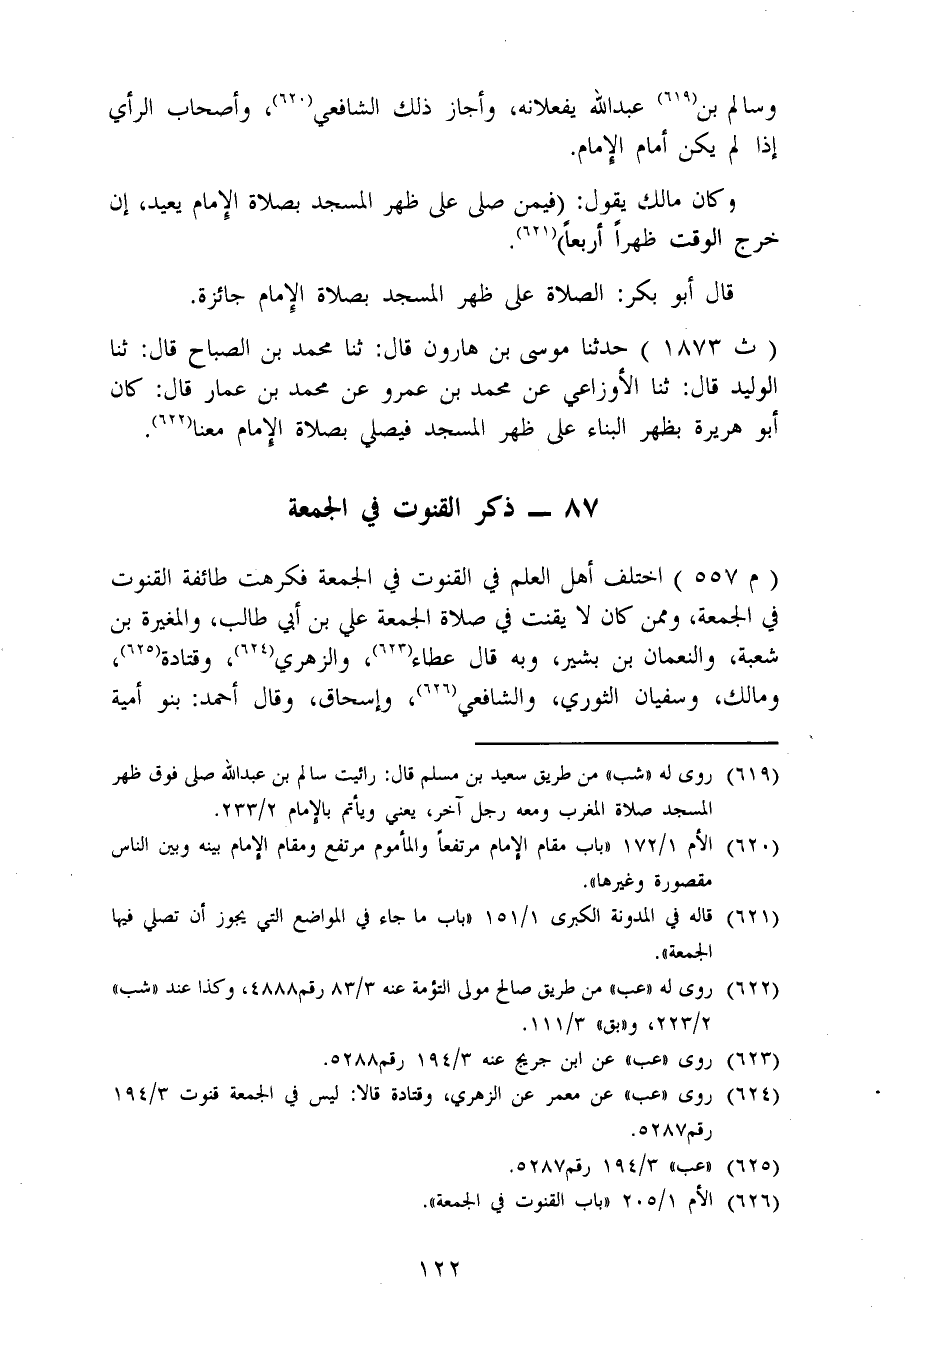 وسالم بن(٦١٩) عبدالله يفعلانه، وأجاز ذلك الشافعي(٦٢٠)، وأصحاب الرأي
إذا لم يكن أمام الإمام.
وكان مالك يقول: (فيمن صلى على ظهر المسجد بصلاة الإمام يعيد، إن
خرج الوقت ظهراً أربعاً)(٦٢١).
قال أبو بكر: الصلاة على ظهر المسجد بصلاة الإمام جائزة.
( ث ١٨٧٣ ) حدثنا موسى بن هارون قال: ثنا محمد بن الصباح قال: ثنا
الوليد قال: ثنا الأوزاعي عن محمد بن عمرو عن محمد بن عمار قال: كان
أبو هريرة بظهر البناء على ظهر المسجد فيصلي بصلاة الإمام معنا(٦٢٢).
٨٧ ــ ذكر القنوت في الجمعة
( م ٥٥٧ ) اختلف أهل العلم في القنوت في الجمعة فكرهت طائفة القنوت
في الجمعة، وممن كان لا يقنت في صلاة الجمعة علي بن أبي طالب، والمغيرة بن
شعبة، والنعمان بن بشير، وبه قال عطاء(٦٢٣)، والزهري(٦٢٤)، وقتادة(٦٢٥)،
ومالك، وسفيان الثوري، والشافعي(٦٢٦)، وإسحاق، وقال أحمد: بنو أمية
(٦١٩) روى له «شب» من طريق سعيد بن مسلم قال: رائيت سالم بن عبدالله صلى فوق ظهر
المسجد صلاة المغرب ومعه رجل آخر، يعني ويأتم بالإمام ٢٣٣/٢.
(٦٢٠) الأم ١٧٢/١ «باب مقام الإمام مرتفعاً والمأموم مرتفع ومقام الإمام بينه وبين الناس
مقصورة وغيرها».
(٦٢١) قاله في المدونة الكبرى ١٥١/١ «باب ما جاء في المواضع التي يجوز أن تصلي فيها
الجمعة».
(٦٢٢) روى له «عب» من طريق صالح مولى التؤمة عنه ٨٣/٣ رقم٤٨٨٨، وكذا عند «شب»
٢٢٣/٢، و«بق» ١١١/٣.
(٦٢٣) روى «عب» عن ابن جريج عنه ١٩٤/٣ رقم٥٢٨٨.
(٦٢٤) روى «عب» عن معمر عن الزهري، وقتادة قالا: ليس في الجمعة قنوت ١٩٤/٣
رقم٥٢٨٧.
(٦٢٥) «عب» ١٩٤/٣ رقم٥٢٨٧.
(٦٢٦) الأم ٢٠٥/١ «باب القنوت في الجمعة».
١٢٢